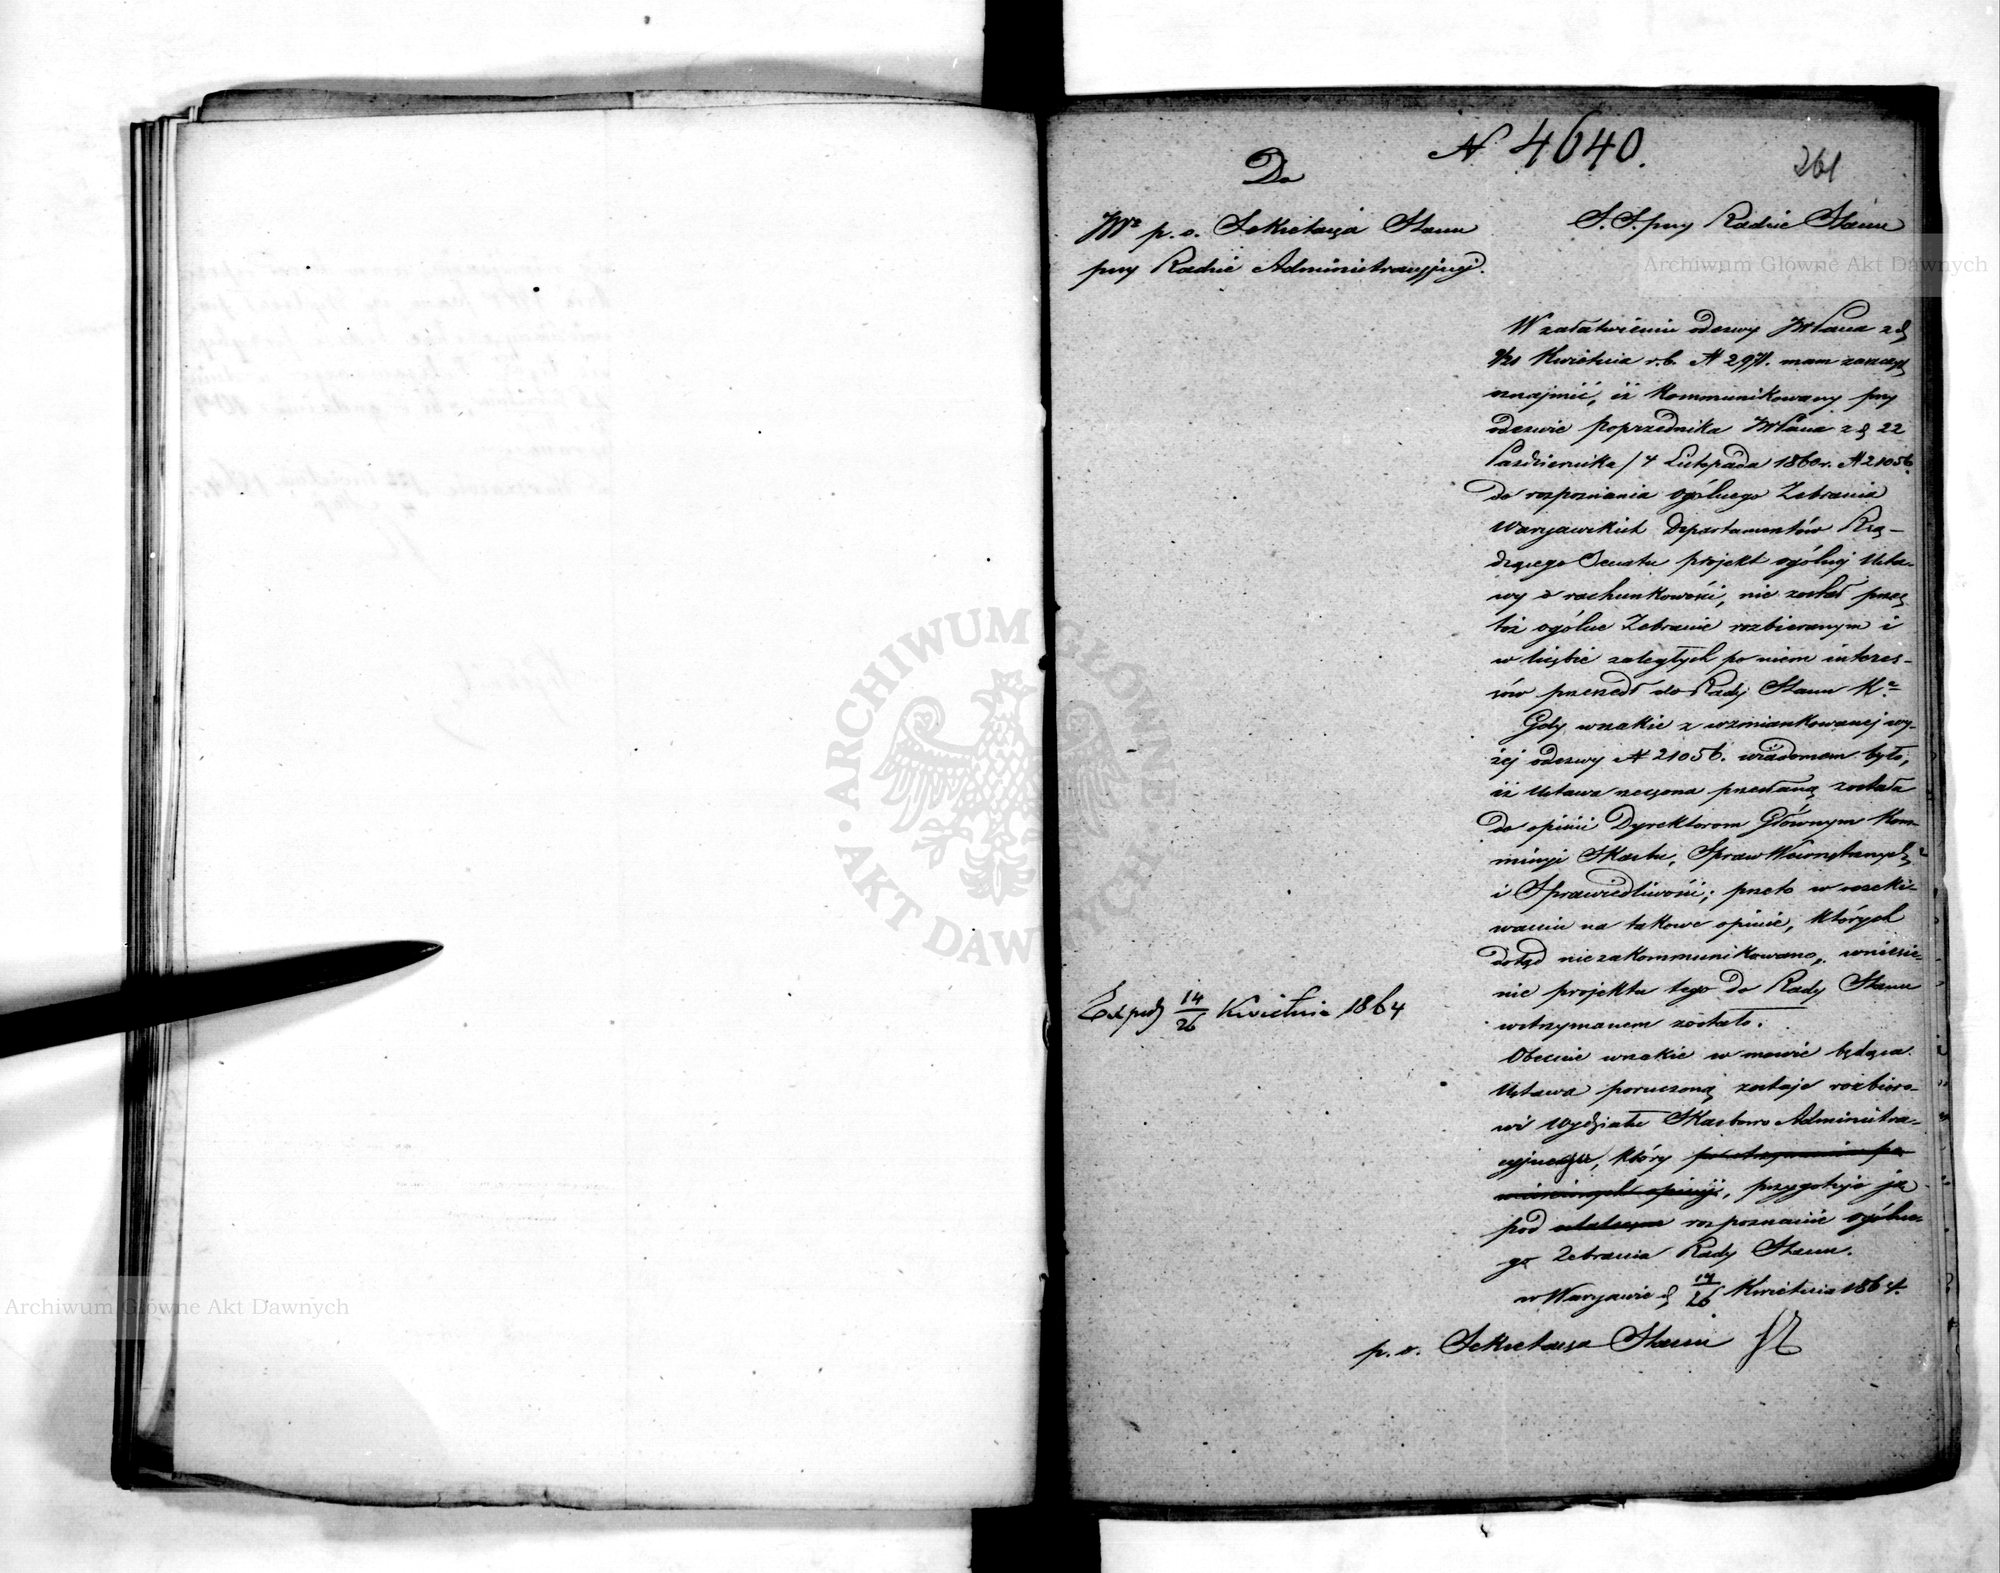 N 4640.
261
Do
JW p. o. Sekretarza Stanu
przy Radzie Administracyjnej.
S. S. przy Radzie Stanu
W załatwieniu odezwy JWPana z d.
Kwietnia r. b. N mam zaszczyt
oznajmić, iż kommunikowany przy
odezwie poprzednika JWPana z d. 22
Października / 4 Listopada 1860 r. N 21056.
do rozpoznania ogólnego Zebrania
Warszawskich Departamentów Rzą-
dzącego Senatu projekt ogólnej Usta-
wy o rachunkowości, nie został przez
toż ogólne Zebranie rozbieranym i
w liczbie zaległych po niem interes-
sów przeszedł do Rady Stanu Kr.
Gdy wszakże z wzmiankowanej wy-
żej odezwy N 21056. wiadomem było,
iż Ustawa rzeczona przesłaną została
do opinii Dyrektorom Głównym Kom-
missyi Skarbu, Spraw Wewnętrznych
i Sprawiedliwości; przeto w oczeki-
waniu na takowe opinie, których
dotąd niezakommunikowano, wniesie-
nie projektu tego do Rady Stanu
wstrzymanem zostało.
Obecnie wszakże w mowie będąca
Ustawa poruczoną zostaje rozbioro-
wi Wydziału Skarbowo Administra-
cyjnego, który po otrzymaniu po-
mienionych opinij, przygotuje ją
pod rozpoznanie ogólne-
go Zebrania Rady Stanu.
w Warszawie d. 14/26 Kwietnia 1864.
p. o. Sekretarza Stanu
Exped 14/26 Kwietnia 1864
Archiwum Główne Akt Dawnych
ARCHIWUM GŁÓWNE AKT DAWNYCH
Archiwum Główne Akt Dawnych